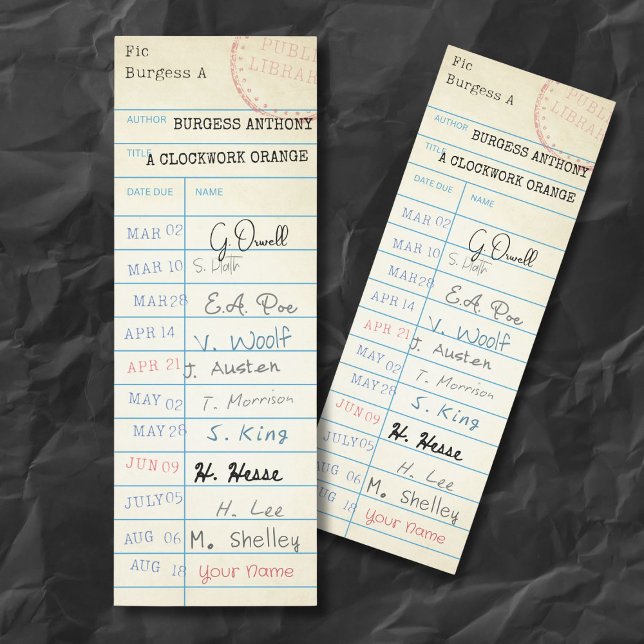 Fic
Burgess A
PUBLIC
LIBRARY
AUTHOR BURGESS ANTHONY
TITLE A CLOCKWORK ORANGE
DATE DUE NAME
MAR 02 G. Orwell
MAR 10 S. Plath
MAR 28 E.A. Poe
APR 14 V. Woolf
APR 21 J. Austen
MAY 02 T. Morrison
MAY 28 S. King
JUN 09 H. Hesse
JULY 05 H. Lee
AUG 06 M. Shelley
AUG 18 Your Name
Fic
Burgess A
PUBLIC
LIBRARY
AUTHOR BURGESS ANTHONY
TITLE A CLOCKWORK ORANGE
DATE DUE NAME
MAR 02 G. Orwell
MAR 10 S. Plath
MAR 28 E.A. Poe
APR 14 V. Woolf
APR 21 J. Austen
MAY 02 T. Morrison
MAY 28 S. King
JUN 09 H. Hesse
JULY 05 H. Lee
AUG 06 M. Shelley
AUG 18 Your Name